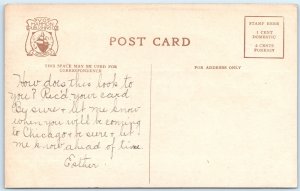 POST CARD
STAMP HERE
1 CENT
DOMESTIC
2 CENTS
FOREIGN
THIS SPACE MAY BE USED FOR
CORRESPONDENCE
FOR ADDRESS ONLY
How does this look to
you? Rec'd your card
By sure & let me know
when you will be coming
to Chicago & be sure & let
me know ahead of time.
Esther